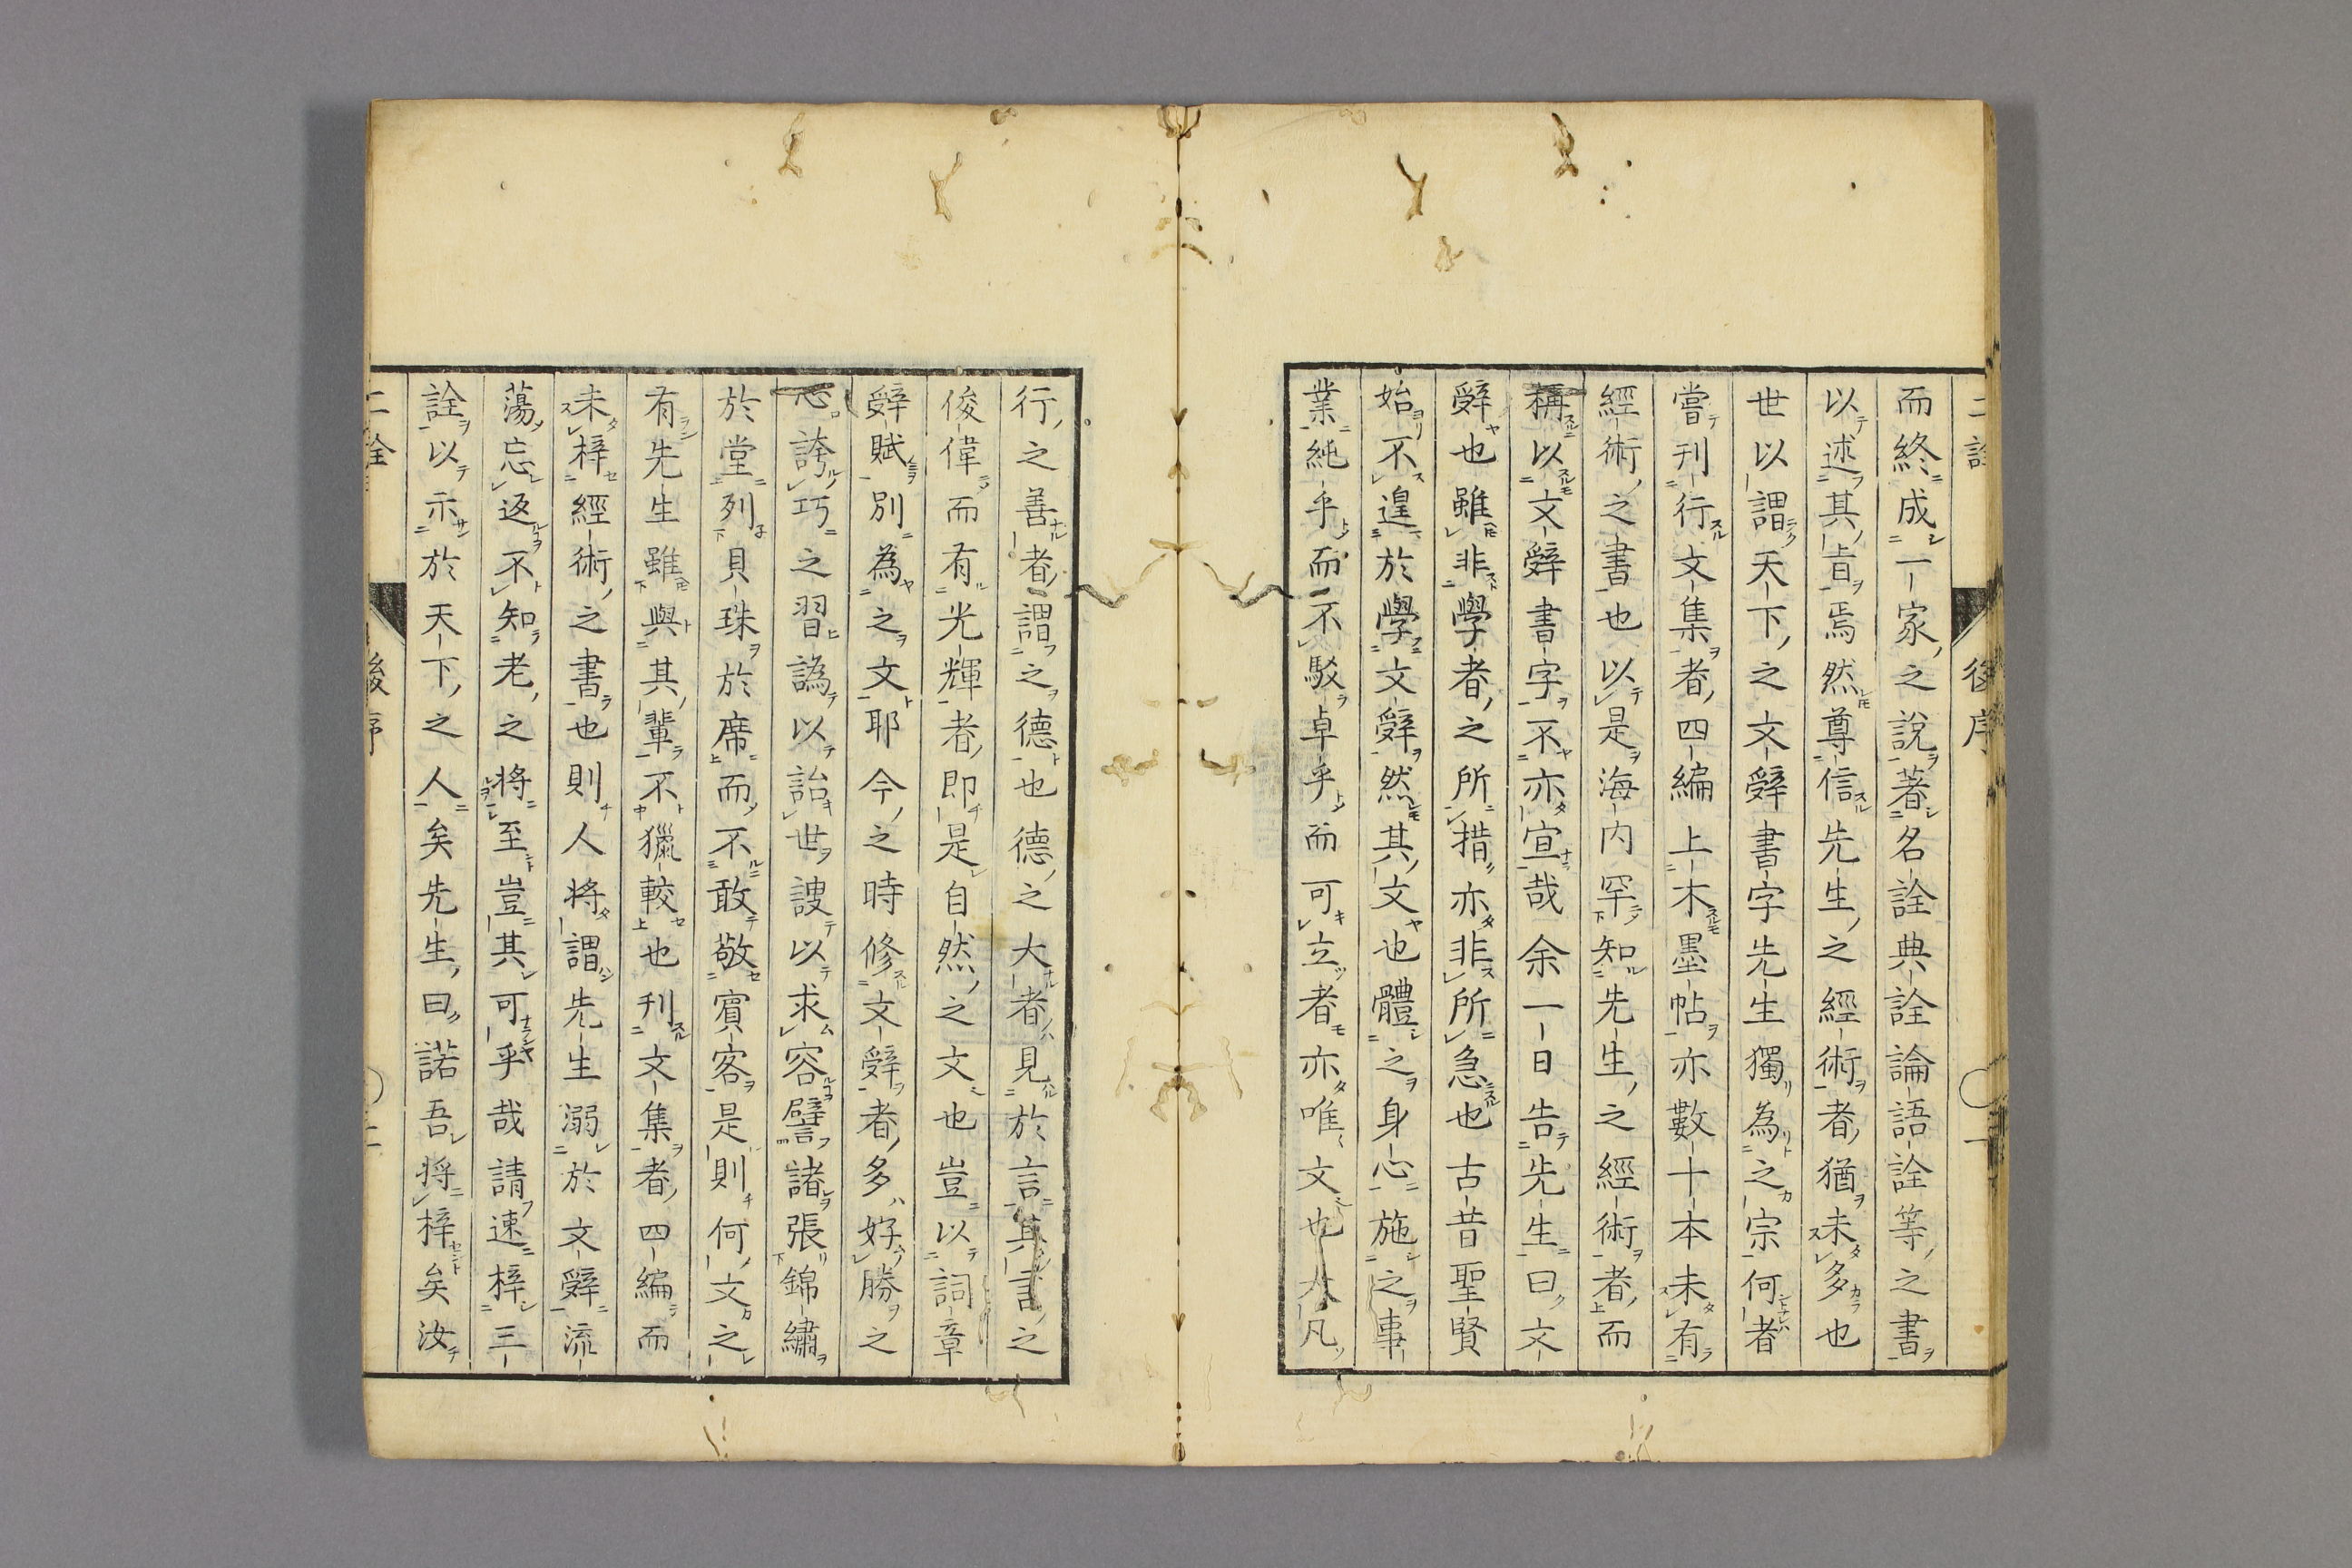 而終成一家之說著名詮典詮論語詮等之書
以述其旨焉然尊信先生之經術者猶未多也
世以謂天下之文辭書字先生獨為之宗何者
嘗刊行文集者四編上木墨帖亦數十本未有
經術之書也以是海内罕知先生之經術者而
稱以文辭書字不亦宣哉余一日告先生曰文
辭也雖非學者之所措亦非所急也古昔聖賢
始不遑於學文辭然其文也體之身心施之事
業純乎而不駁卓乎而可立者亦唯文也大凡
行之善者謂之德也德之大者見於言其言之
俊偉而有光輝者即是自然之文也豈以詞章
辭賦別為之文耶今之時修文辭者多好勝之
心誇巧之習譌以詒世謏以求容譬諸張錦繡
於堂列貝珠於席而不敢敬賓客是則何文之
有先生雖與其輩不獵較也刊文集者四編而
未梓經術之書也則人将謂先生溺於文辭流
蕩忘返不知老之将至豈其可乎哉請速梓三
詮以示於天下之人矣先生曰諾吾将梓矣汝